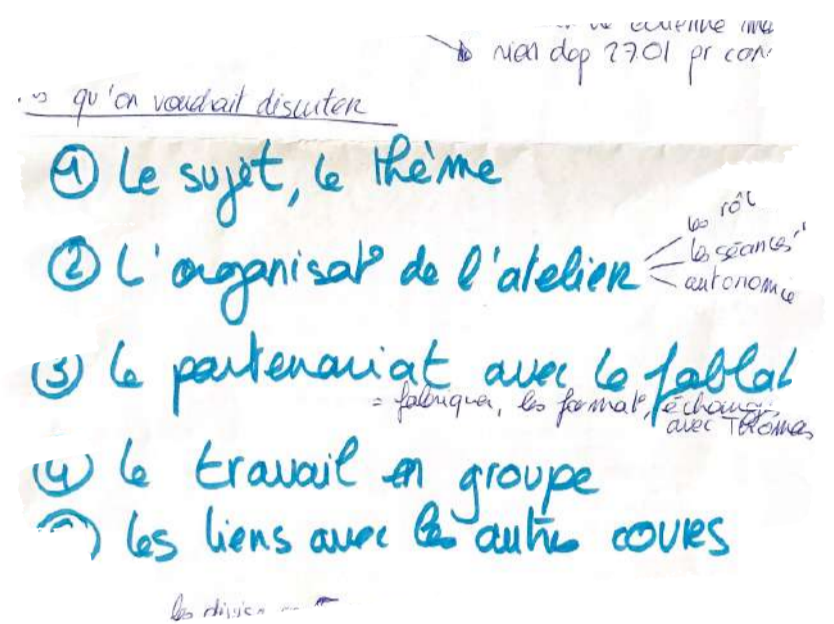 rien dop 27.01 pr
qu'on voudrait discuter
① Le sujet, le thème
② L'organisat° de l'atelier
les rôl
les séances
autonomie
③ le partenariat avec le fablab
= fabriquer, les format°, échange,
avec Thomas
④ le travail en groupe
les liens avec les autres cours
les